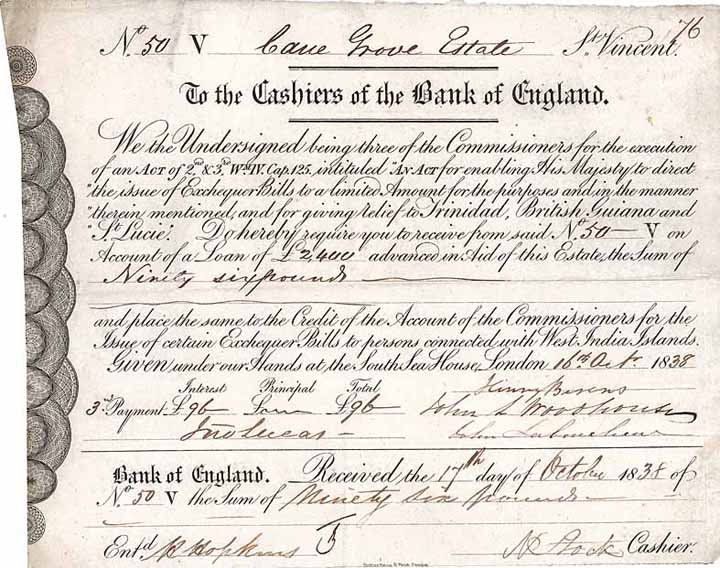 No. 50 V Cane Grove Estate St. Vincent. 76
To the Cashiers of the Bank of England.
We the Undersigned being three of the Commissioners for the execution
of an Act of 2nd & 3rd Wm. IV. Cap. 125, intituled "An Act for enabling His Majesty to direct
"the issue of Exchequer Bills to a limited Amount for the purposes and in the manner
"therein mentioned, and for giving relief to Trinidad, British Guiana and
"St. Lucie". Do hereby require you to receive from said No. 50 V on
Account of a Loan of £2,400 advanced in Aid of this Estate, the Sum of
Ninety six pounds
and place the same to the Credit of the Account of the Commissioners for the
Issue of certain Exchequer Bills to persons connected with West India Islands.
Given under our Hands at the South Sea House, London 16th Octr. 1838
Interest Principal Total Henry Berens
3rd Payment £96 £96 John S Woodhouse
Jno Lucas John Labouchere
Bank of England. Received the 17th day of October 1838 of
No. 50 V the Sum of Ninety six pounds
Entd. Hopkins Cashier.